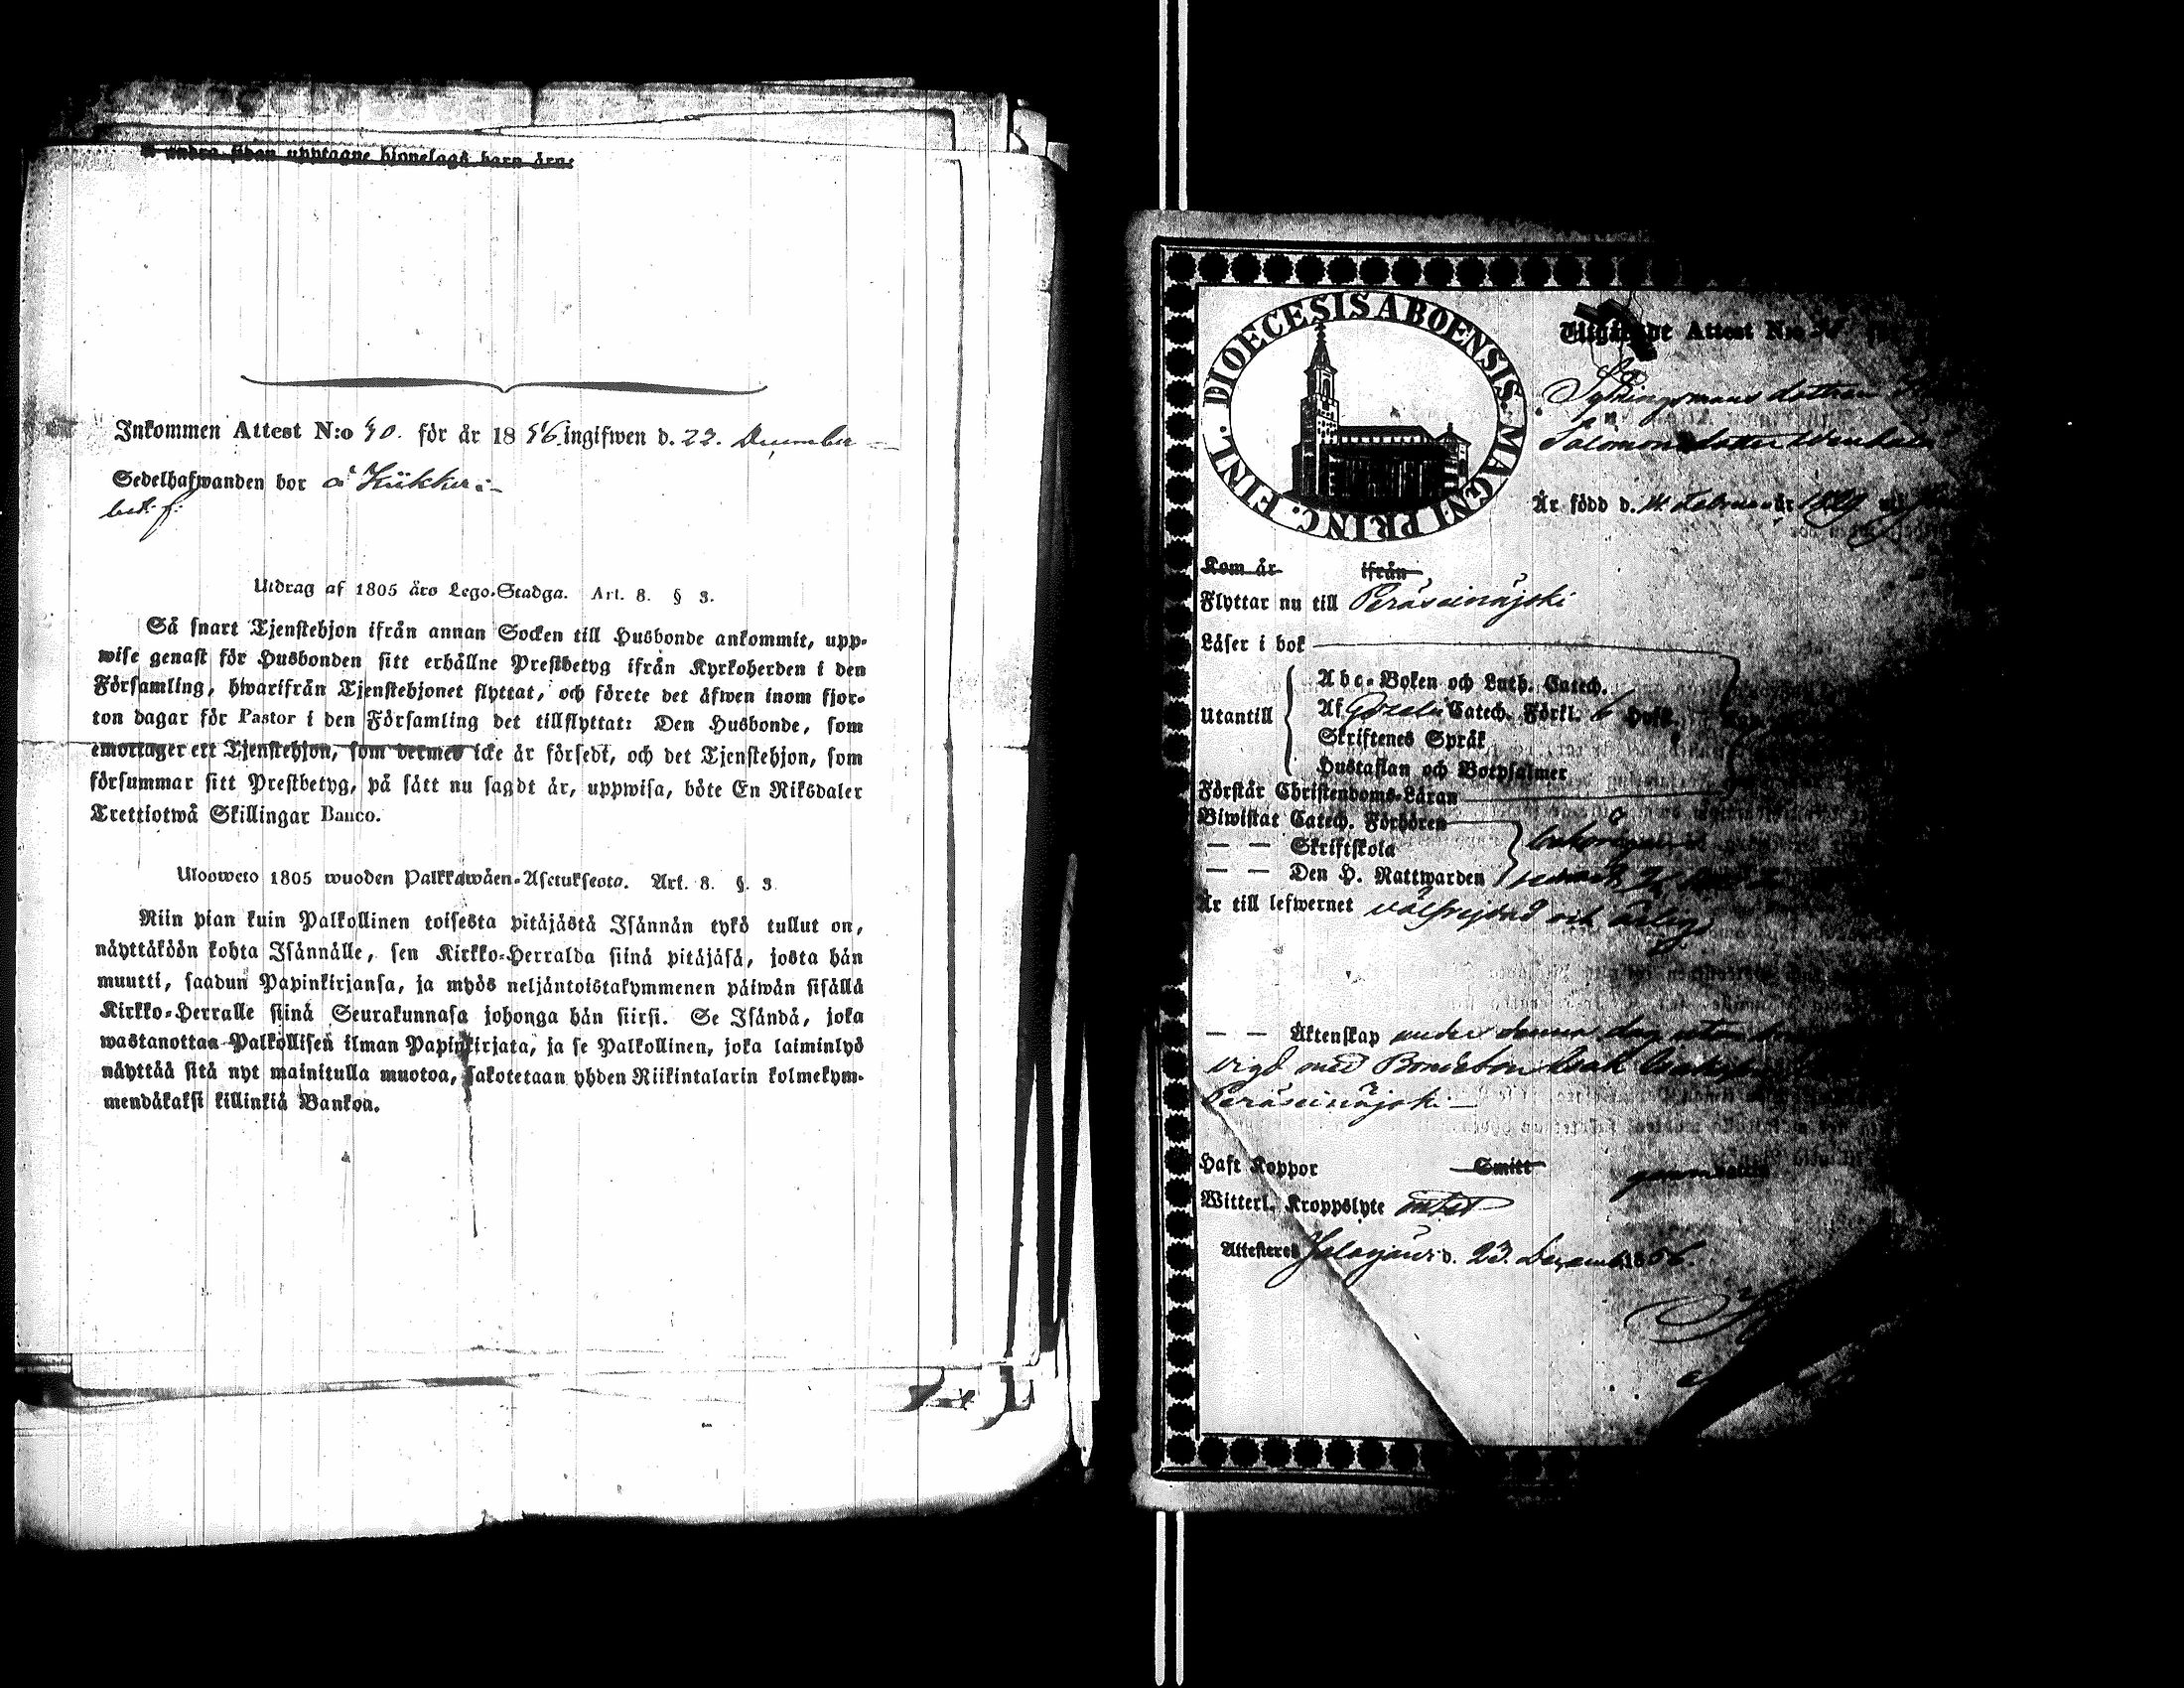 å andra sidan upptagne hjonelags barn äro:
Inkommen Attest N:o 40. för år 1856. ingifwen d. 22. December
Sedelhafwanden bor å Kiikkeri
Utdrag af 1805 års Lego-Stadga. Art. 8. § 3.
Så snart Tjenstehjon ifrån annan Socken till Husbonde ankommit, upp-
wise genast för Husbonden sitt erhållne Prestbetyg ifrån Kyrkoherden i den
Församling, hwarifrån Tjenstehjonet flyttat, och förete det äfwen inom fjor-
ton dagar för Pastor i den Församling det tillflyttat: Den Husbonde, som
emottager ett Tjenstehjon, som dermed icke är försedt, och det Tjenstehjon, som
försummar sitt Prestbetyg, på sätt nu sagdt är, uppwisa, böte En Riksdaler
Trettiotwå Skillingar Banco.
Ulosweto 1805 wuoden Palkkawäen-Asetuksesta. Art. 8. §. 3.
Niin pian kuin Palkollinen toisesta pitäjästä Isännän tykö tullut on,
näyttäköön kohta Isännälle, sen Kirkko-Herralda siinä pitäjäsä, josta hän
muutti, saadun Papinkirjansa, ja myös neljäntoistakymmenen päiwän sisällä
Kirkko-Herralle siinä Seurakunnasa johonga hän siirsi. Se Isändä, joka
wastanottaa Palkollisen ilman Papinkirjata, ja se Palkollinen, joka laiminlyö
näyttää sitä nyt mainitulla muotoa, sakotetaan yhden Riikintalarin kolmekym-
mendäkaksi killinkiä Bankoa.
DIOECESIS ABOENSIS. MAGNI PRINC. FINL.
Utgående Attest N:o
dottren
Salomonsdotter
Är född d. 14. Februari år 1829
Kom år ifrån
Flyttar nu till Peräseinäjoki
Läser i bok
Utantill
Abc-Boken och Luth. Catech.
Af Gezelii Catech. Förkl. 6 Hufs.
Skriftenes Språk
Hustaflan och Botpsalmer
Förstår Christendoms-Läran
Biwistat Catech. Förhören
— — Skriftskola behörigen
— — Den H. Nattwarden senast
Är till lefwernet välfrejdad och ärlig
— — Äktenskap under denna dag utan
vigd med Bondeson Isak
Peräseinäjoki
Haft Koppor Smitt
Witterl. Kroppslyte intet
Attesteras Jalasjärvi d. 23. Decemb. 1856.